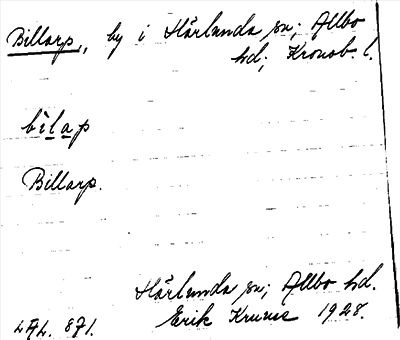 Billarp, by i Härlunda sn; Allbo
hd; Kronob. l.
bìlap
Billarp.
Härlunda sn; Allbo hd.
Erik Kruuse 1928.
LAL. 871.